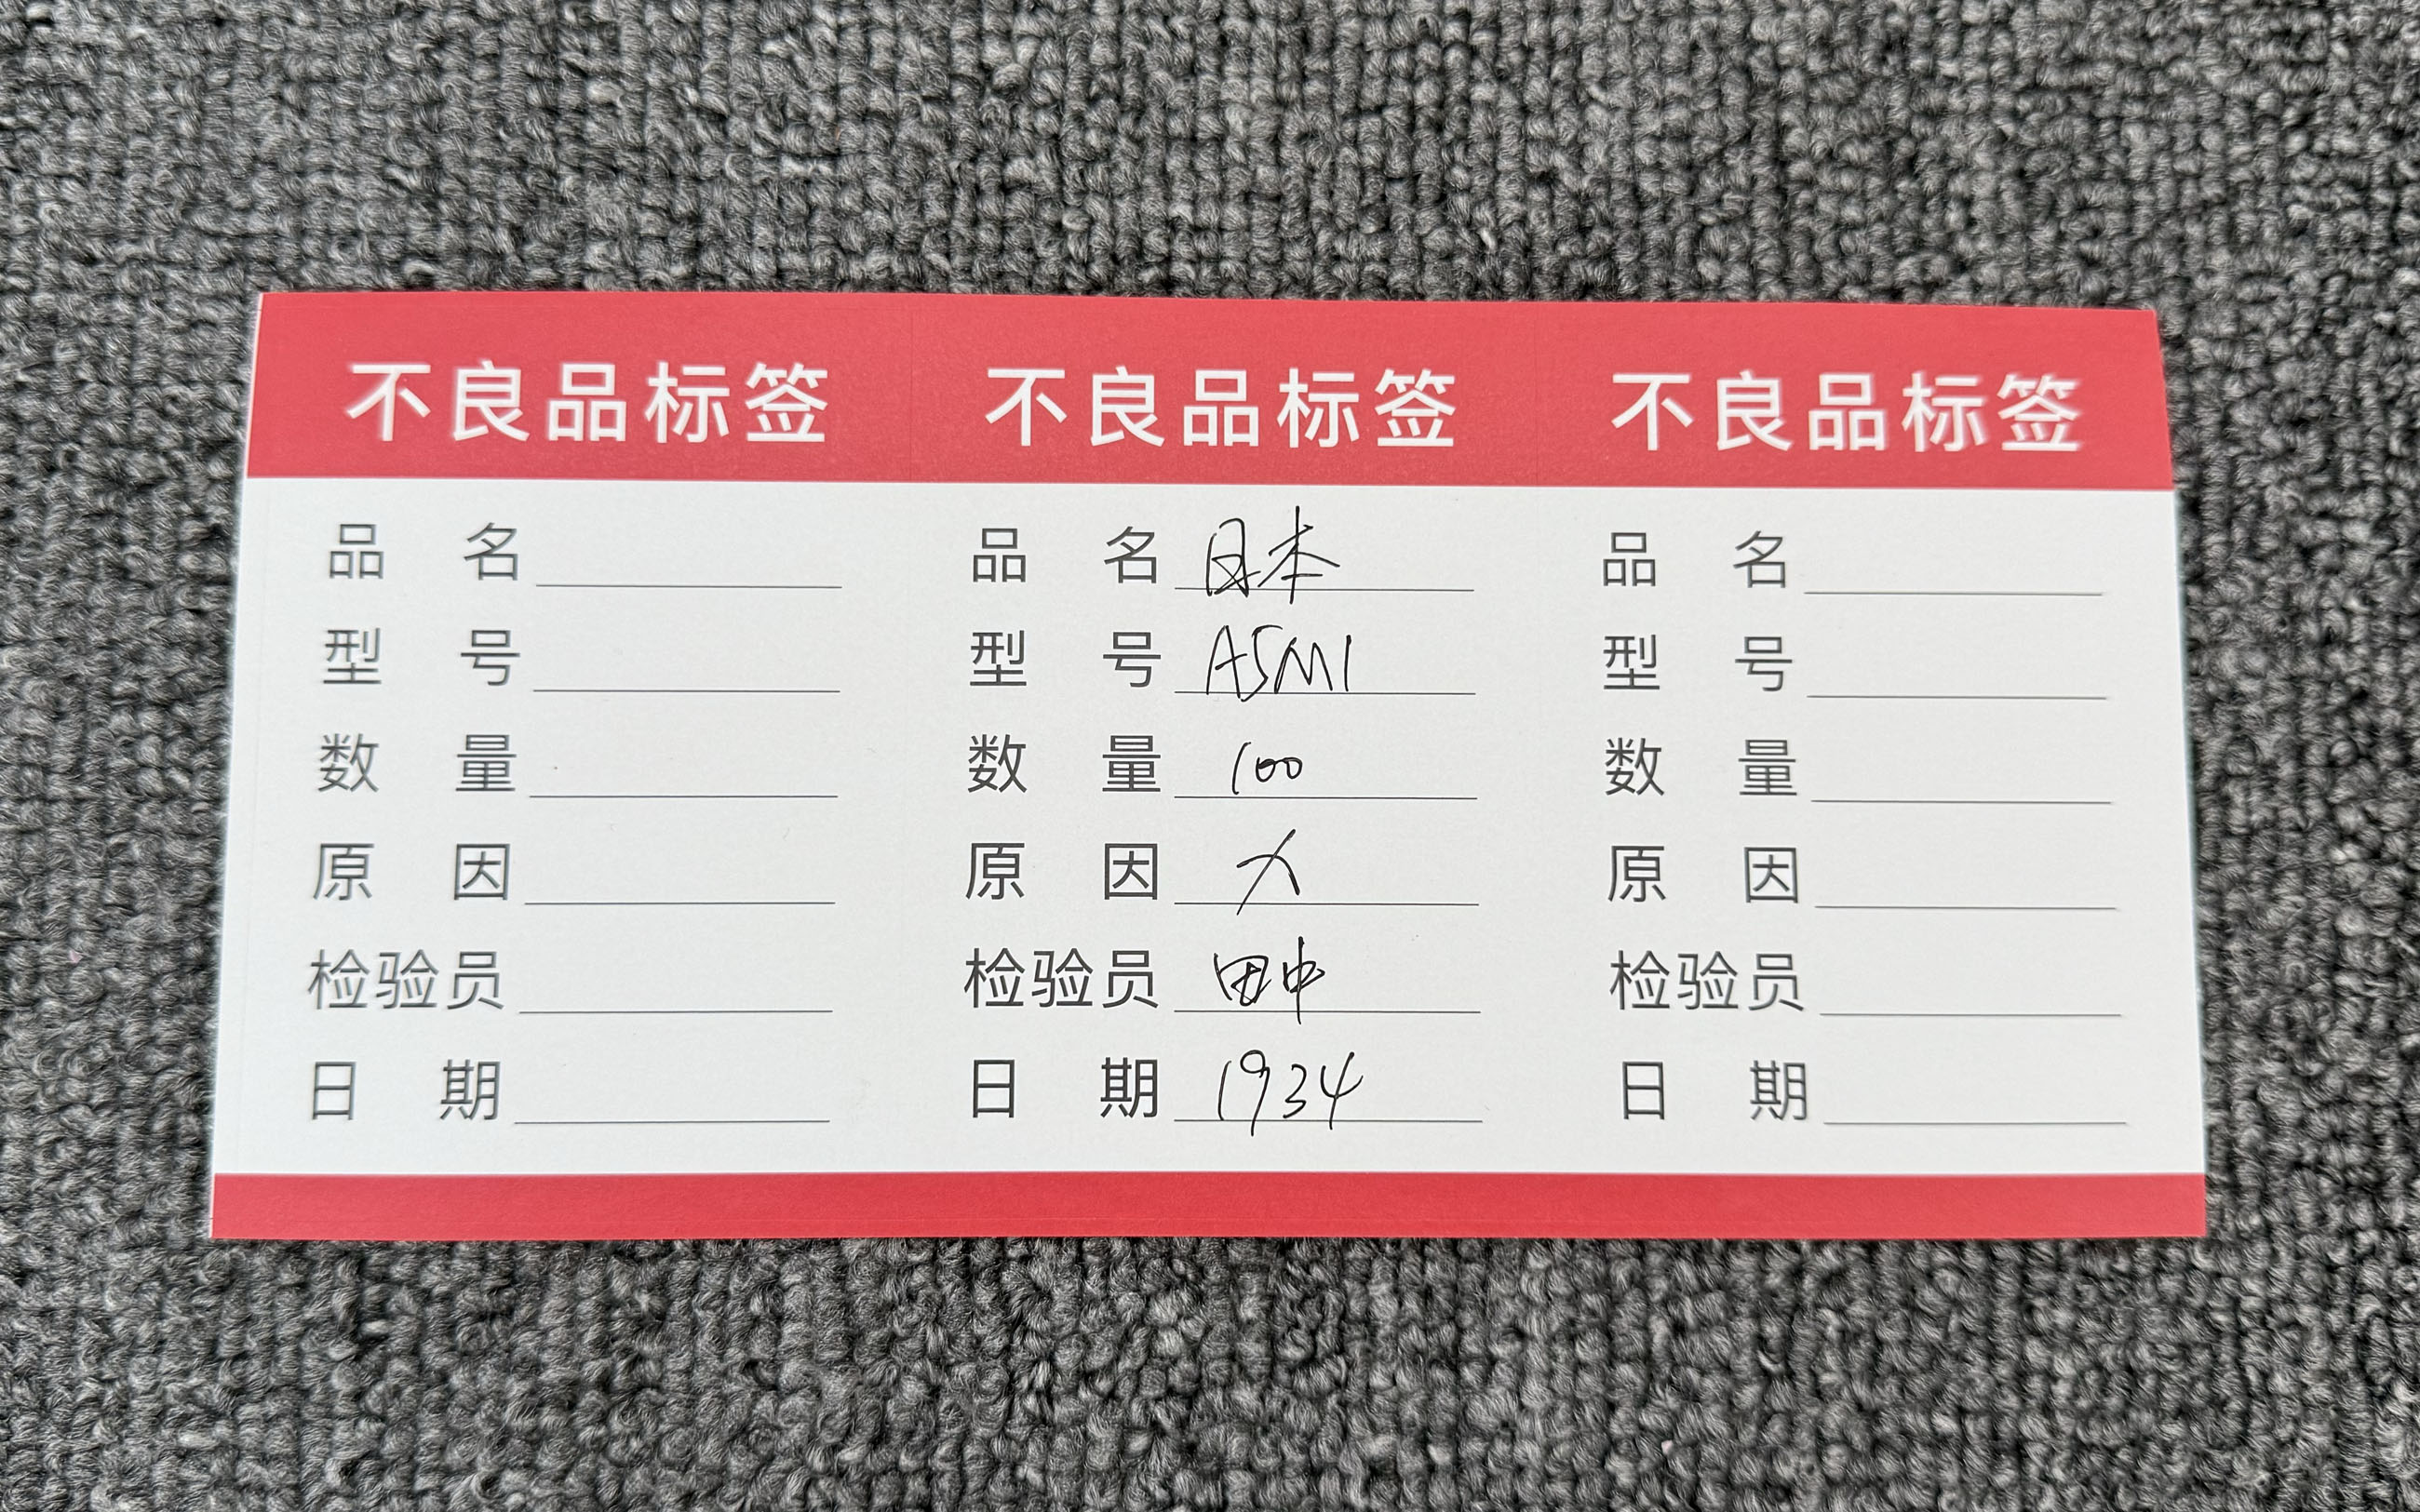 不良品标签
品 名
型 号
数 量
原 因
检验员
日 期
不良品标签
品 名 日本
型 号 ASM1
数 量 100
原 因
检验员 田中
日 期 1934
不良品标签
品 名
型 号
数 量
原 因
检验员
日 期